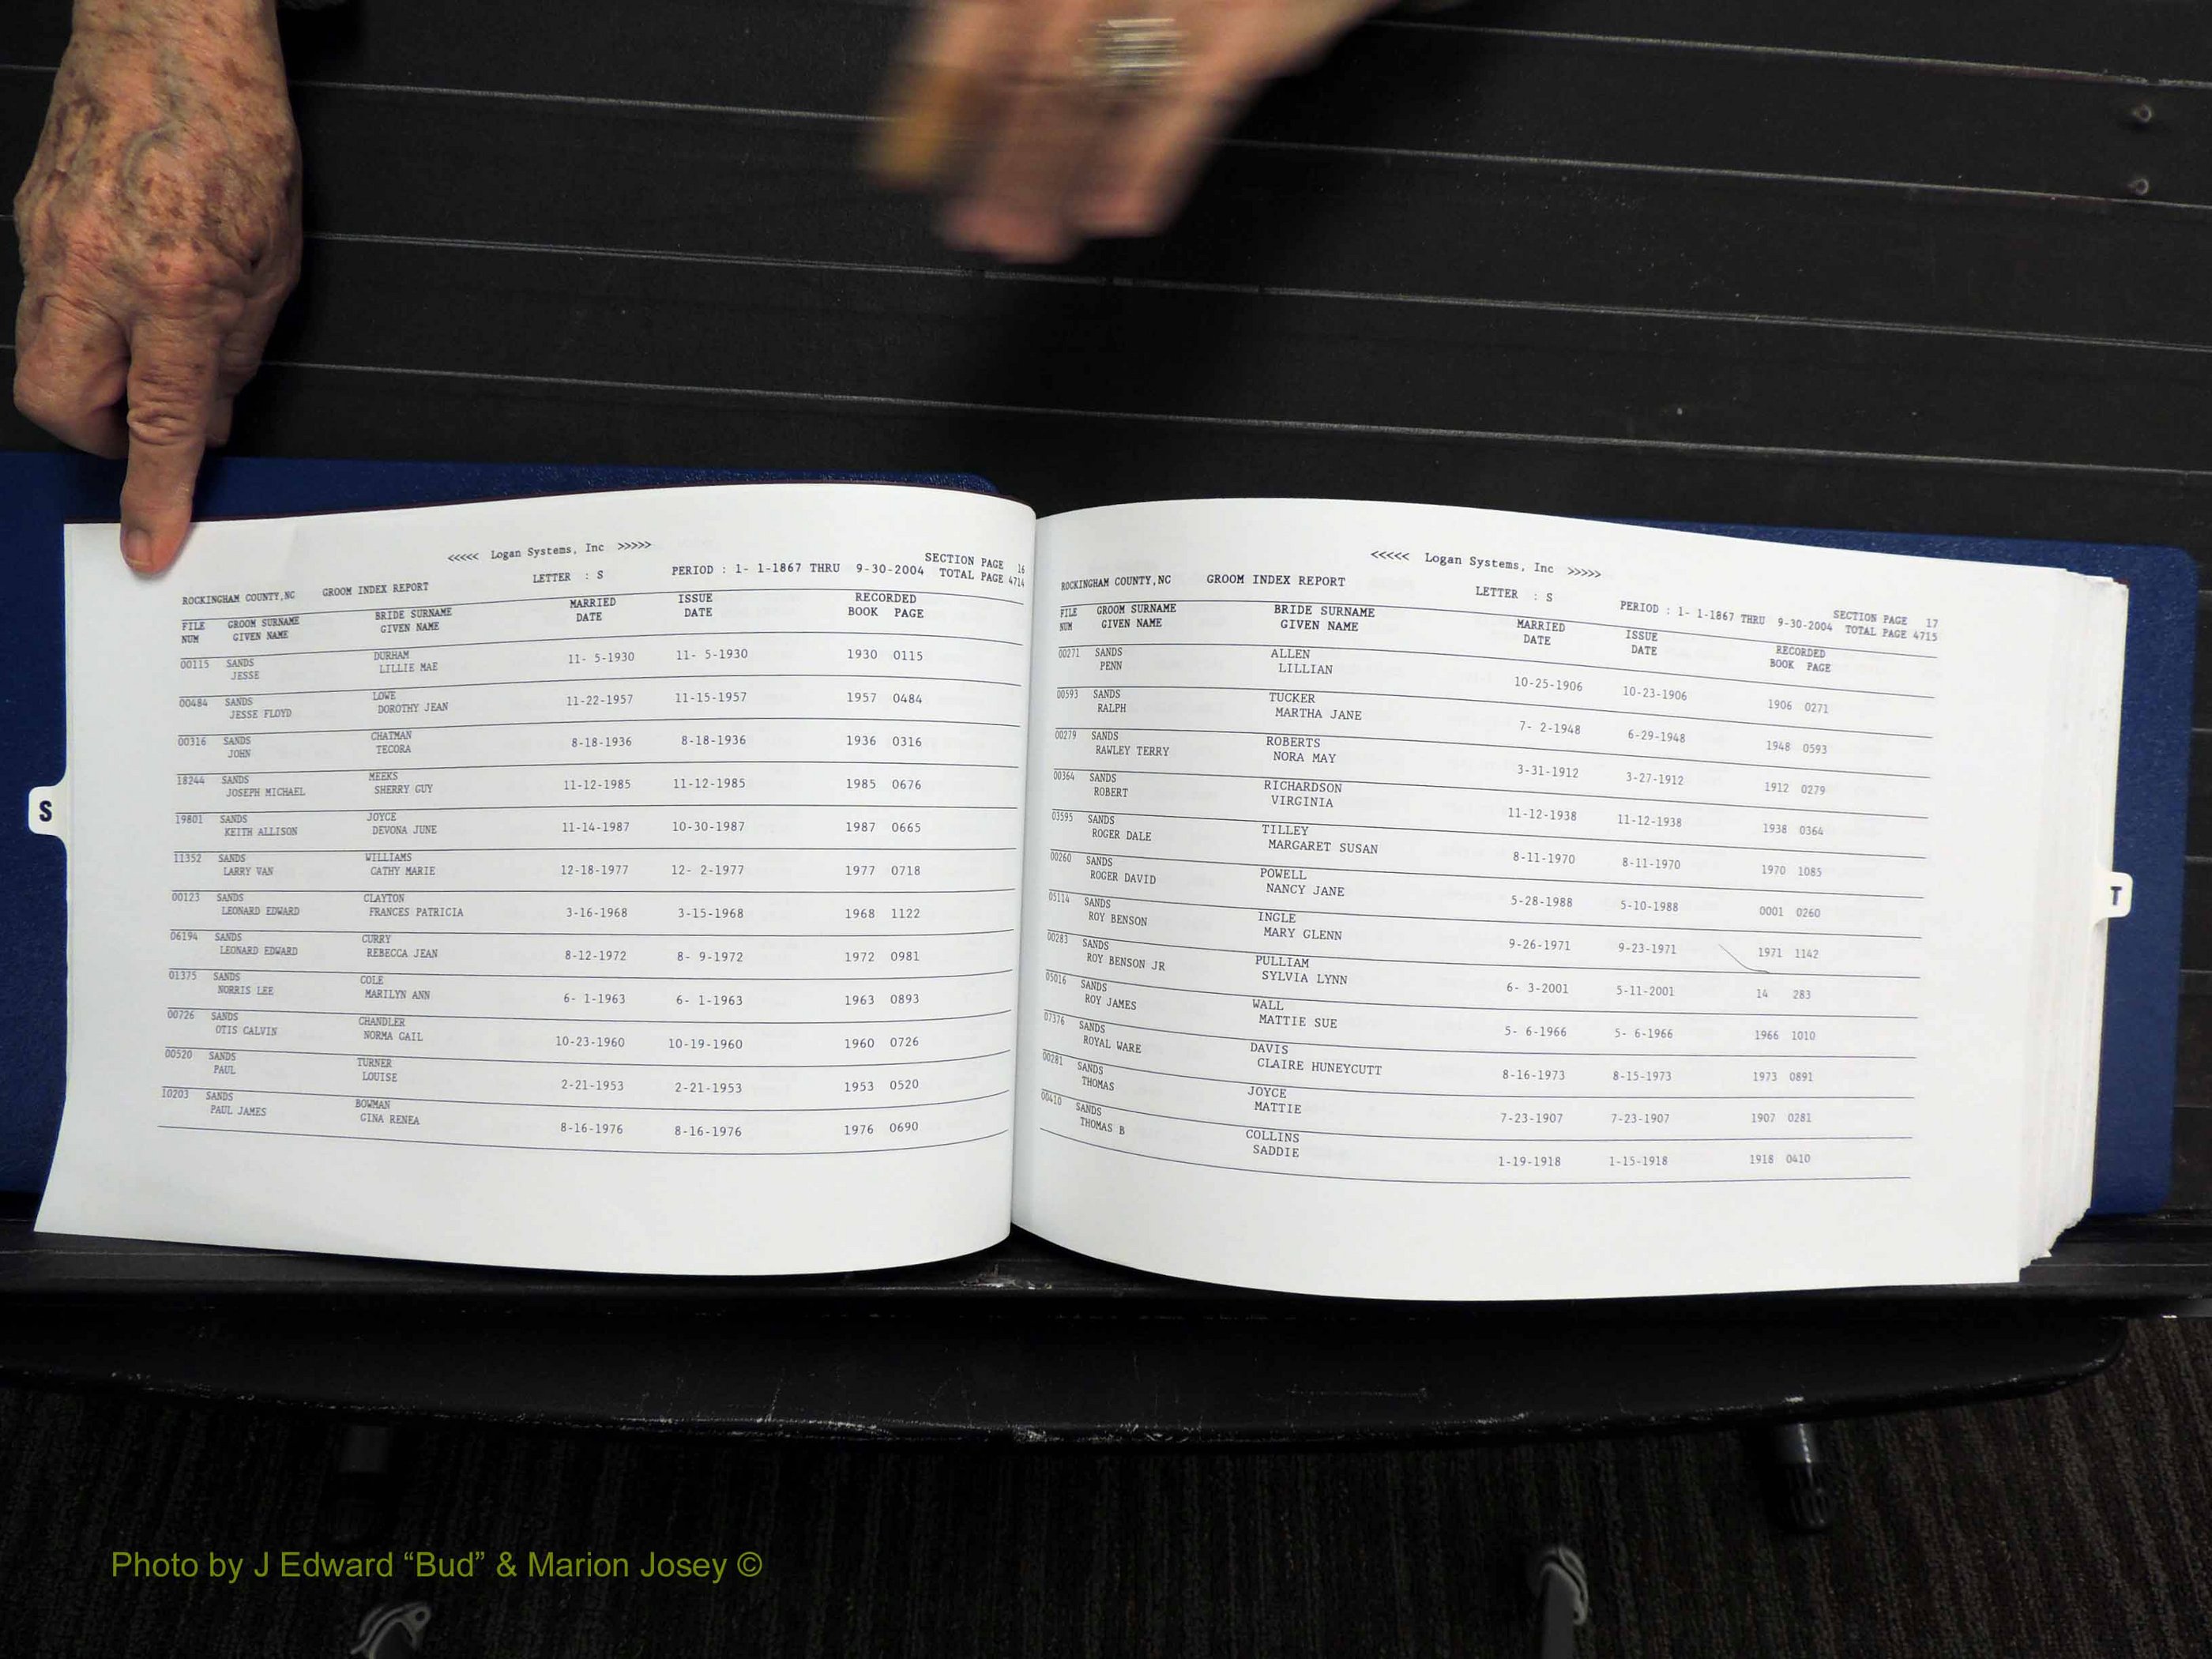 <<<<< Logan Systems, Inc >>>>>
SECTION PAGE 16
ROCKINGHAM COUNTY,NC GROOM INDEX REPORT LETTER : S PERIOD : 1- 1-1867 THRU 9-30-2004 TOTAL PAGE 4714
FILE GROOM SURNAME BRIDE SURNAME MARRIED ISSUE RECORDED
NUM GIVEN NAME GIVEN NAME DATE DATE BOOK PAGE
00115 SANDS DURHAM 11- 5-1930 11- 5-1930 1930 0115
JESSE LILLIE MAE
00484 SANDS LOWE 11-22-1957 11-15-1957 1957 0484
JESSE FLOYD DOROTHY JEAN
00316 SANDS CHATMAN 8-18-1936 8-18-1936 1936 0316
JOHN TECORA
18244 SANDS MEEKS 11-12-1985 11-12-1985 1985 0676
JOSEPH MICHAEL SHERRY GUY
19801 SANDS JOYCE 11-14-1987 10-30-1987 1987 0665
KEITH ALLISON DEVONA JUNE
11352 SANDS WILLIAMS 12-18-1977 12- 2-1977 1977 0718
LARRY VAN CATHY MARIE
00123 SANDS CLAYTON 3-16-1968 3-15-1968 1968 1122
LEONARD EDWARD FRANCES PATRICIA
06194 SANDS CURRY 8-12-1972 8- 9-1972 1972 0981
LEONARD EDWARD REBECCA JEAN
01375 SANDS COLE 6- 1-1963 6- 1-1963 1963 0893
NORRIS LEE MARILYN ANN
00726 SANDS CHANDLER 10-23-1960 10-19-1960 1960 0726
OTIS CALVIN NORMA GAIL
00520 SANDS TURNER 2-21-1953 2-21-1953 1953 0520
PAUL LOUISE
10203 SANDS BOWMAN 8-16-1976 8-16-1976 1976 0690
PAUL JAMES GINA RENEA
S
<<<<< Logan Systems, Inc >>>>>
SECTION PAGE 17
ROCKINGHAM COUNTY,NC GROOM INDEX REPORT LETTER : S PERIOD : 1- 1-1867 THRU 9-30-2004 TOTAL PAGE 4715
FILE GROOM SURNAME BRIDE SURNAME MARRIED ISSUE RECORDED
NUM GIVEN NAME GIVEN NAME DATE DATE BOOK PAGE
00271 SANDS ALLEN 10-25-1906 10-23-1906 1906 0271
PENN LILLIAN
00593 SANDS TUCKER 7- 2-1948 6-29-1948 1948 0593
RALPH MARTHA JANE
00279 SANDS ROBERTS 3-31-1912 3-27-1912 1912 0279
RAWLEY TERRY NORA MAY
00364 SANDS RICHARDSON 11-12-1938 11-12-1938 1938 0364
ROBERT VIRGINIA
03595 SANDS TILLEY 8-11-1970 8-11-1970 1970 1085
ROGER DALE MARGARET SUSAN
00260 SANDS POWELL 5-28-1988 5-10-1988 0001 0260
ROGER DAVID NANCY JANE
05114 SANDS INGLE 9-26-1971 9-23-1971 1971 1142
ROY BENSON MARY GLENN
00283 SANDS PULLIAM 6- 3-2001 5-11-2001 14 283
ROY BENSON JR SYLVIA LYNN
05016 SANDS WALL 5- 6-1966 5- 6-1966 1966 1010
ROY JAMES MATTIE SUE
07376 SANDS DAVIS 8-16-1973 8-15-1973 1973 0891
ROYAL WARE CLAIRE HUNEYCUTT
00281 SANDS JOYCE 7-23-1907 7-23-1907 1907 0281
THOMAS MATTIE
00410 SANDS COLLINS 1-19-1918 1-15-1918 1918 0410
THOMAS B SADDIE
T
Photo by J Edward “Bud” & Marion Josey ©